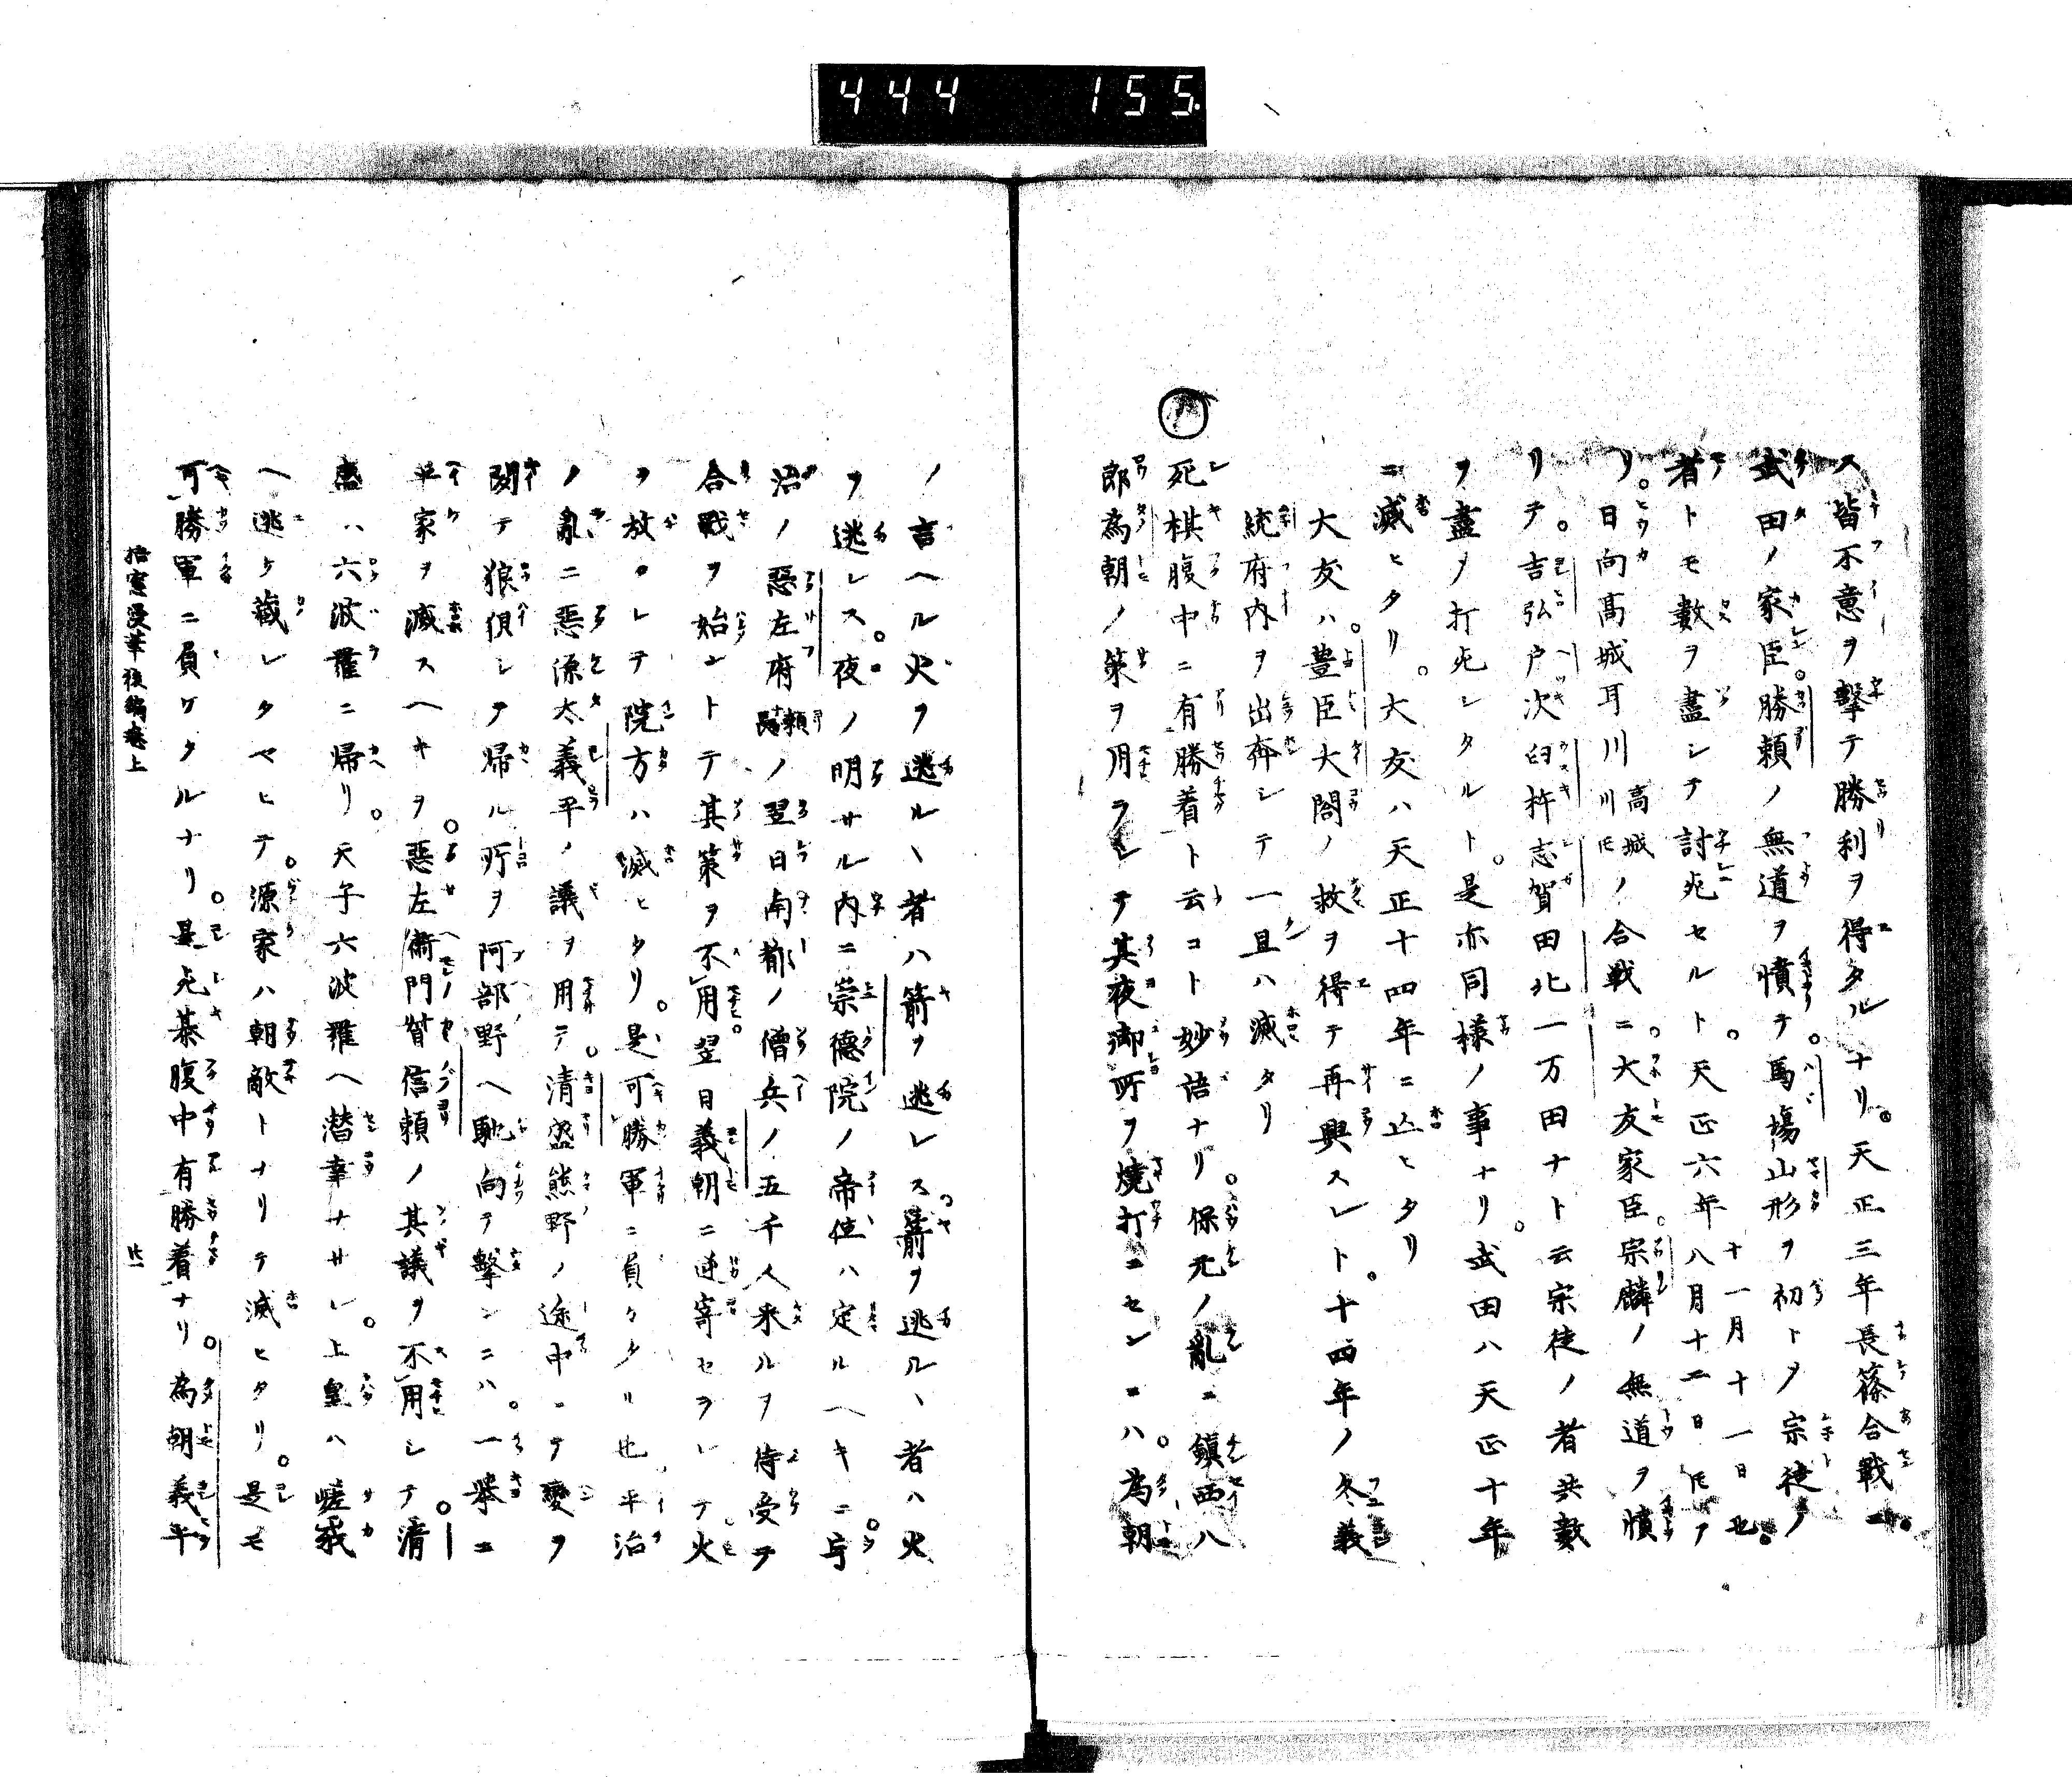 444 155
ス皆不意ヲ撃テ勝利ヲ得タルナリ。天正三年長篠合戰ニ。
武田ノ家臣。勝頼ノ無道ヲ憤テ。馬場山形ヲ初トヲ宗徒ノ
者トモ數ヲ盡シテ討死セルト。天正六年八月十二日十一月十一日也。
リ。日向高城耳川高城川ノ合戦ニ。大友家臣。宗麟ノ無道ヲ憤
リテ。吉弘戸次臼杵志賀田北一万田ナト云宗徒ノ者共數
ヲ盡ヲ打死シタルト。是亦同様ノ事ナリ。武田ハ天正十年
ニ滅ヒタリ。大友ハ天正十四年ニ亡ヒタリ
大友ハ。豊臣大閤ノ救ヲ得テ再興スレト。十四年ノ冬義
統府内ヲ出奔シテ一旦ハ滅タリ
死棋腹中ニ有勝着ト云コト妙語ナリ。保元ノ亂ニ鎮西八
郎為朝ノ策ヲ用ラレテ其夜御所ヲ燒打ニセンニハ。為朝
ノ言ヘル火ヲ逃ルヽ者ハ箭ヲ逃レス箭ヲ逃ルヽ者ハ火
ヲ逃レス。夜ノ明サル内ニ崇德院ノ帝位ハ定ルヘキニ。宇
治ノ惡左府頼長ノ翌日南都ノ僧兵ノ五千人来ルヲ待受テ
合戰ヲ始ントテ其策ヲ不用。翌日義朝ニ逆寄セヲレテ火
ヲ放レテ院方ハ滅ヒタリ。是可勝軍ニ負ケタリ也平治
ノ亂ニ惡源太義平ノ議ヲ用テ。清盛熊野ノ途中ニテ變ヲ
聞テ狼狽シヲ帰ル所ヲ阿部野ヘ馳向テ撃ンニハ。一擧ニ
平家ヲ滅スヘキヲ。惡左衛門督信頼ノ其議ヲ不用シテ。清
盛ハ六波羅ニ帰リ。天子六波羅ヘ潜幸ナサレ。上皇ハ嵯峨
ヘ逃ケ蔵レタマヒテ。源家ハ朝敵トナリテ滅ヒタリ。是モ
可勝軍ニ負ケタルナリ。是死棊腹中有勝着ナリ。為朝義平
梧窓漫筆後編巻上